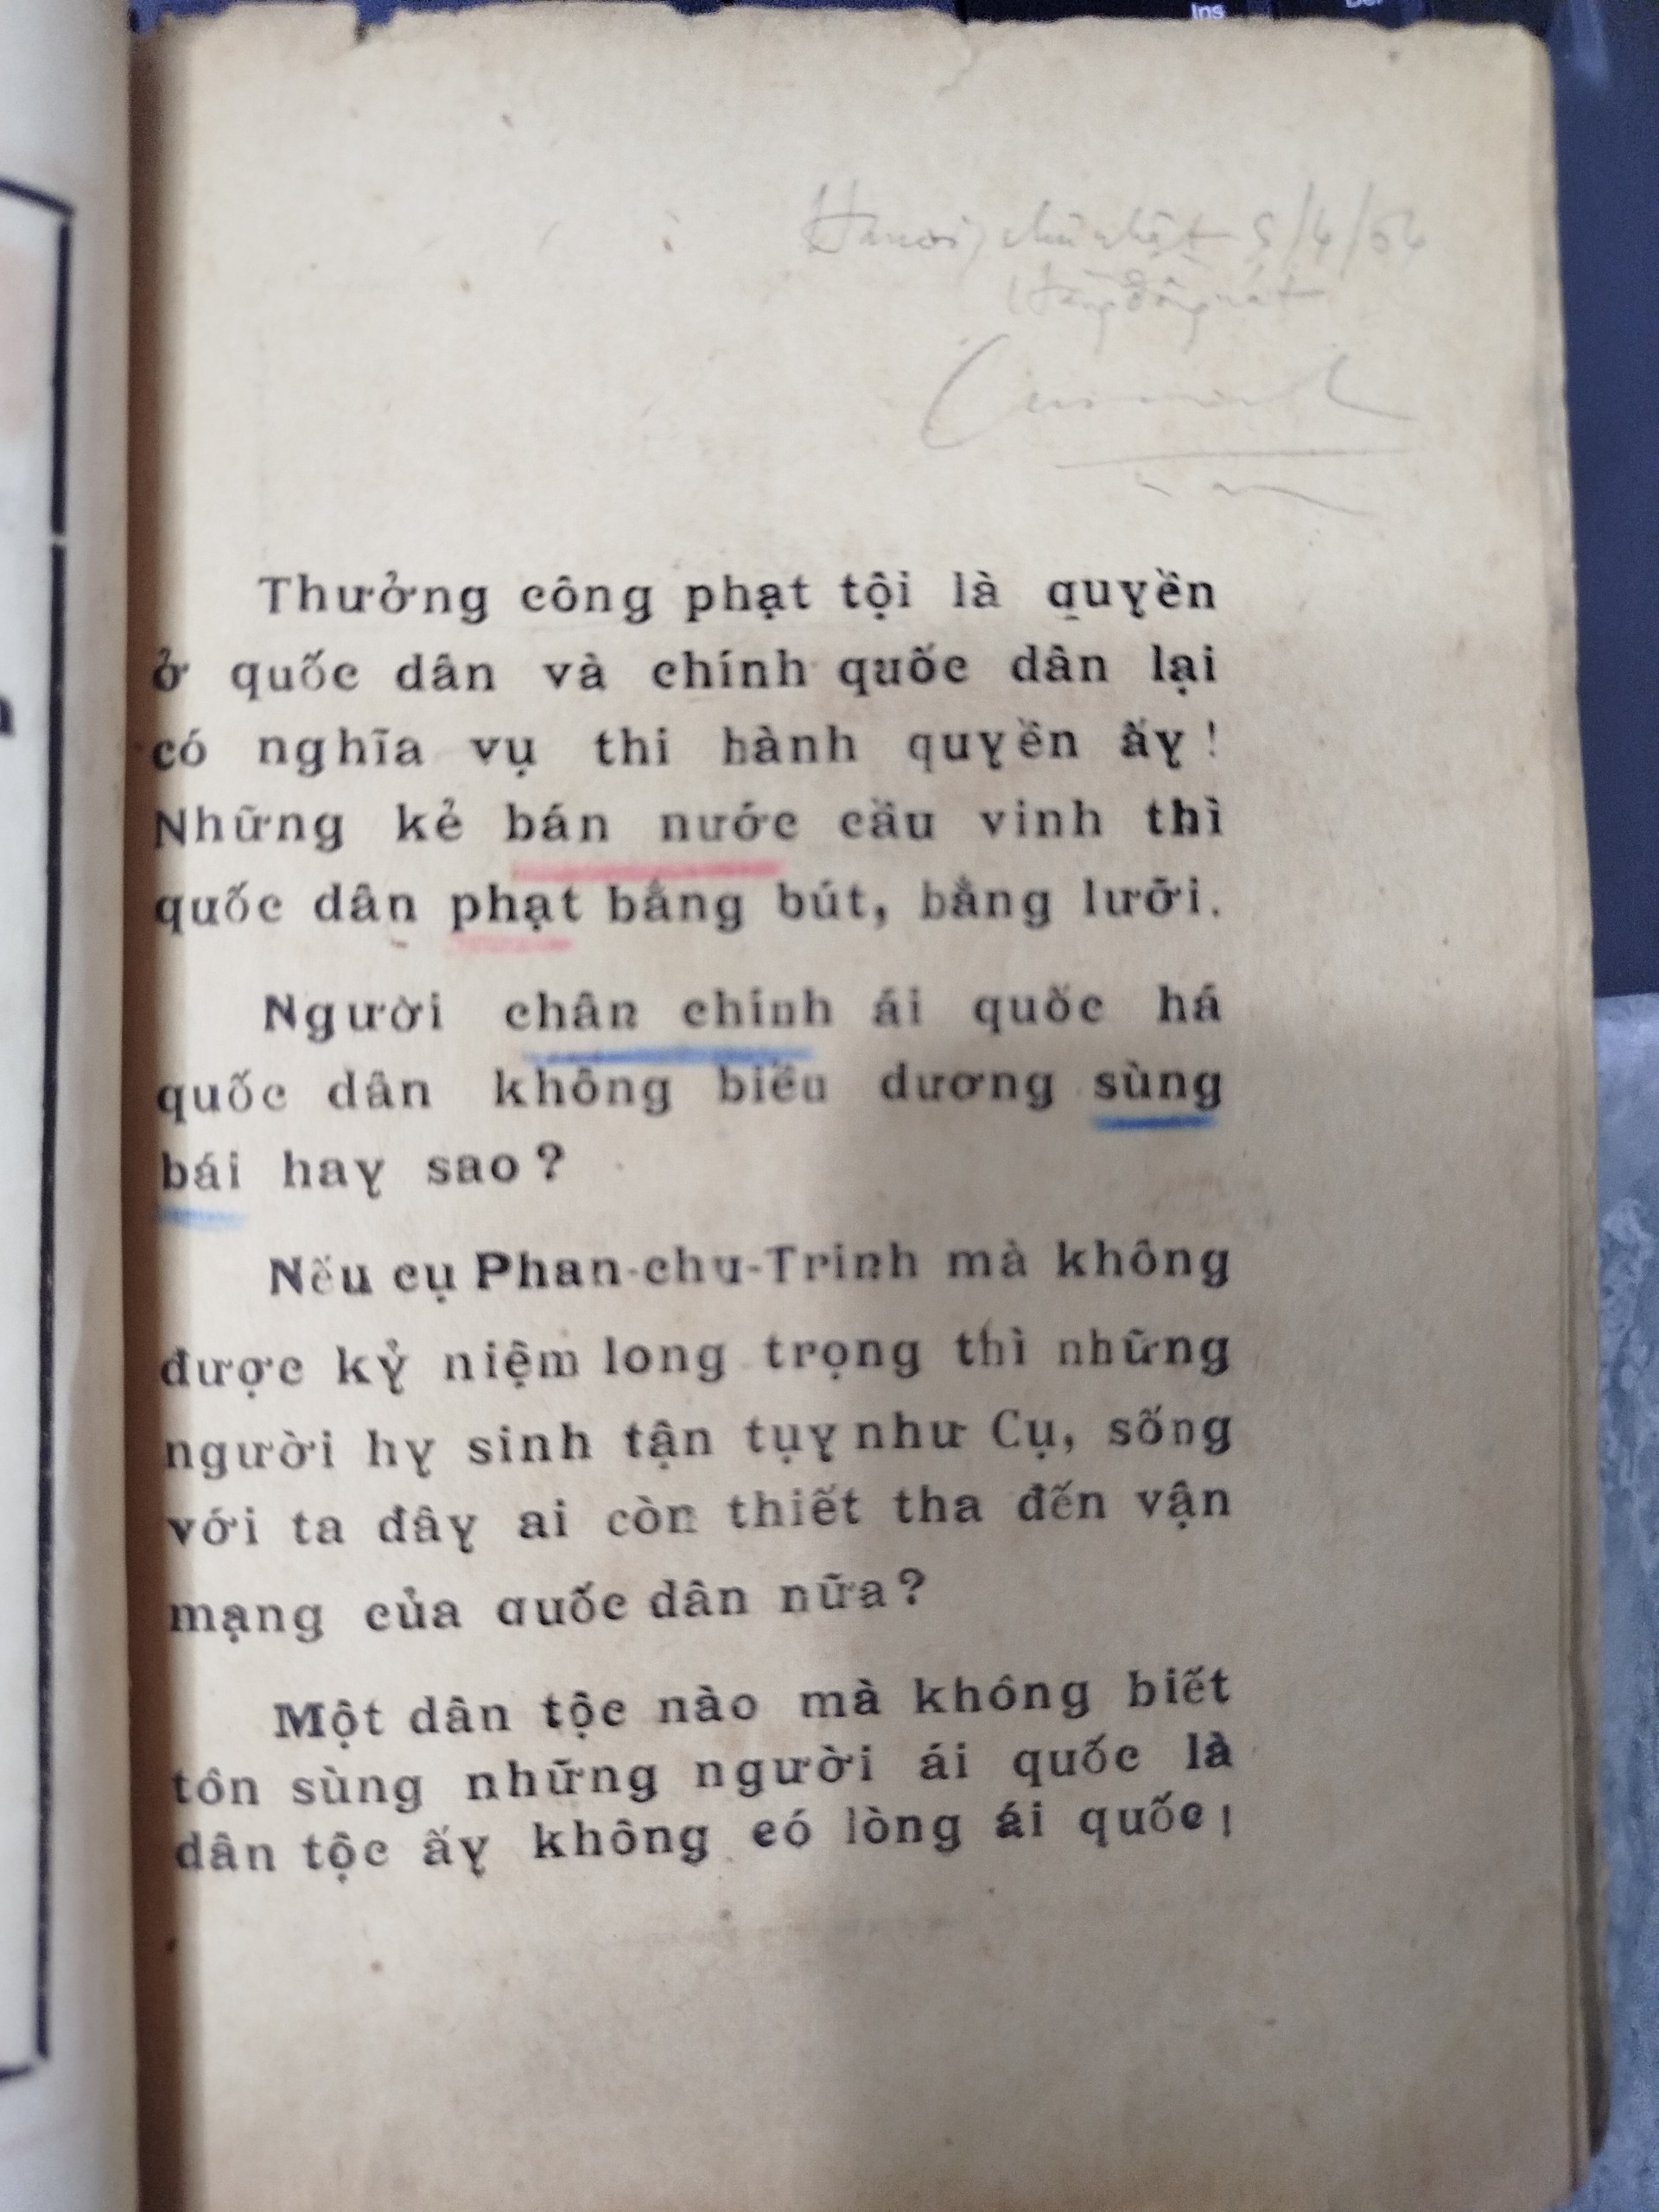 Ins
Hanoi, chủ nhật 5/4/64
Thưởng công phạt tội là quyền
ở quốc dân và chính quốc dân lại
có nghĩa vụ thi hành quyền ấy !
Những kẻ bán nước cầu vinh thì
quốc dân phạt bằng bút, bằng lưỡi.
Người chân chính ái quốc há
quốc dân không biểu dương sùng
bái hay sao ?
Nếu cụ Phan-chu-Trinh mà không
được kỷ niệm long trọng thì những
người hy sinh tận tụy như Cụ, sống
với ta đây ai còn thiết tha đến vận
mạng của quốc dân nữa ?
Một dân tộc nào mà không biết
tôn sùng những người ái quốc là
dân tộc ấy không có lòng ái quốc !